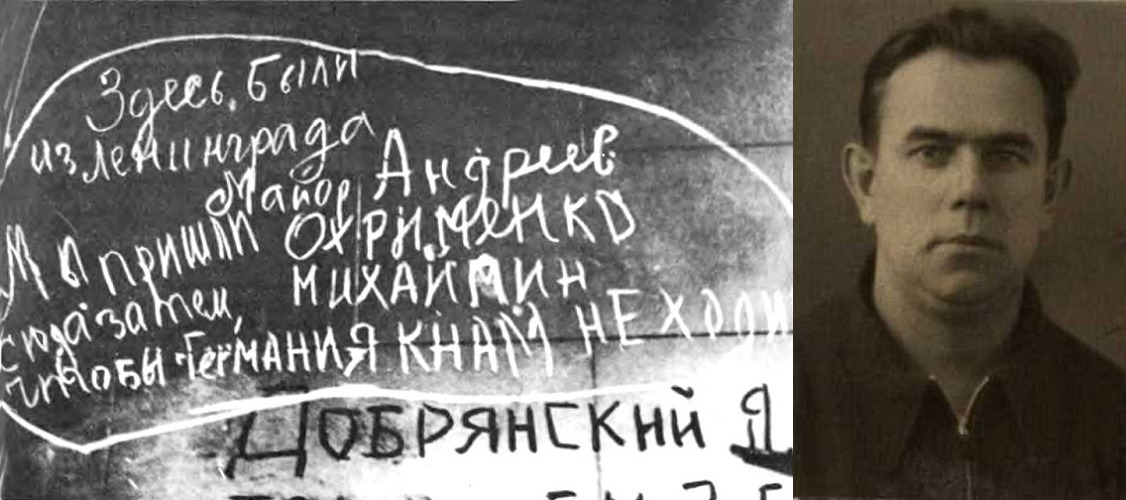 Здесь были
из Ленинграда
Майор Андреев
ОХРИМЕНКО
МИХАЙЛИН
Мы пришли
сюда затем,
чтобы Германия К НАМ НЕ ХОДИ
ДОБРЯНСКИЙ